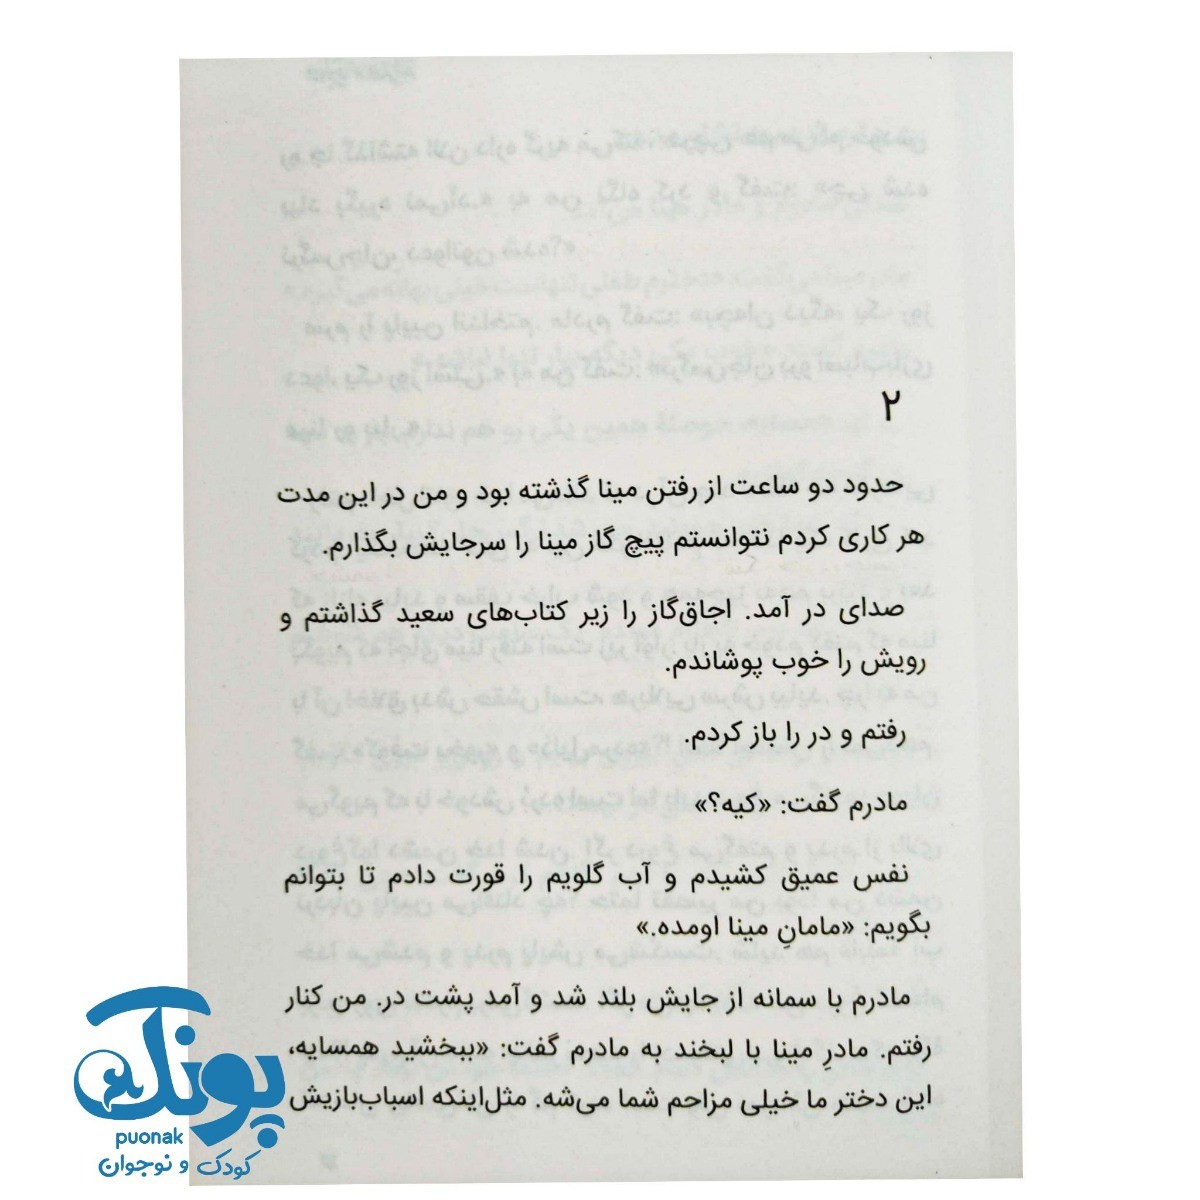 ۲
حدود دو ساعت از رفتن مینا گذشته بود و من در این مدت
هر کاری کردم نتوانستم پیچ گاز مینا را سرجایش بگذارم.
صدای در آمد. اجاق‌گاز را زیر کتاب‌های سعید گذاشتم و
رویش را خوب پوشاندم.
رفتم و در را باز کردم.
مادرم گفت: «کیه؟»
نفس عمیق کشیدم و آب گلویم را قورت دادم تا بتوانم
بگویم: «مامانِ مینا اومده.»
مادرم با سمانه از جایش بلند شد و آمد پشت در. من کنار
رفتم. مادرِ مینا با لبخند به مادرم گفت: «ببخشید همسایه،
این دختر ما خیلی مزاحم شما می‌شه. مثل‌اینکه اسباب‌بازیش
پونک
puonak
کودک و نوجوان